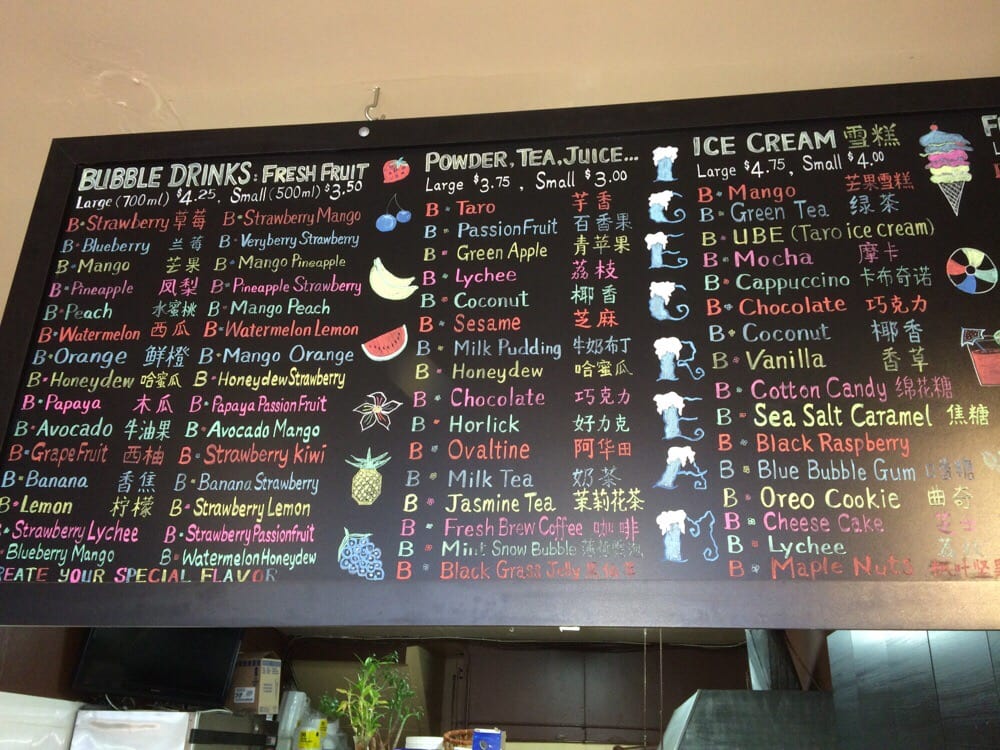 BUBBLE DRINKS: FRESH FRUIT
Large (700ml) $4.25, Small (500ml) $3.50
B•Strawberry 草莓 B•Strawberry Mango
B•Blueberry 兰莓 B•Veryberry Strawberry
B•Mango 芒果 B•Mango Pineapple
B•Pineapple 凤梨 B•Pineapple Strawberry
B•Peach 水蜜桃 B•Mango Peach
B•Watermelon 西瓜 B•Watermelon Lemon
B•Orange 鲜橙 B•Mango Orange
B•Honeydew 哈蜜瓜 B•Honeydew Strawberry
B•Papaya 木瓜 B•Papaya Passion Fruit
B•Avocado 牛油果 B•Avocado Mango
B•Grape Fruit 西柚 B•Strawberry kiwi
B•Banana 香蕉 B•Banana Strawberry
B•Lemon 柠檬 B•Strawberry Lemon
B•Strawberry Lychee B•Strawberry Passionfruit
B•Blueberry Mango B•Watermelon Honeydew
REATE YOUR SPECIAL FLAVOR
POWDER, TEA, JUICE...
Large $3.75, Small $3.00
B•Taro 芋香
B•Passion Fruit 百香果
B•Green Apple 青苹果
B•Lychee 荔枝
B•Coconut 椰香
B•Sesame 芝麻
B•Milk Pudding 牛奶布丁
B•Honeydew 哈蜜瓜
B•Chocolate 巧克力
B•Horlick 好力克
B•Ovaltine 阿华田
B•Milk Tea 奶茶
B•Jasmine Tea 茉莉花茶
B•Fresh Brew Coffee 咖啡
B•Mint Snow Bubble
B•Black Grass Jelly
ICE CREAR
ICE CREAM 雪糕
Large $4.75, Small $4.00
B•Mango 芒果雪糕
B•Green Tea 绿茶
B•UBE (Taro ice cream)
B•Mocha 摩卡
B•Cappuccino 卡布奇诺
B•Chocolate 巧克力
B•Coconut 椰香
B•Vanilla 香草
B•Cotton Candy 绵花糖
B•Sea Salt Caramel 焦糖
B•Black Raspberry
B•Blue Bubble Gum
B•Oreo Cookie 曲奇
B•Cheese Cake 芝士
B•Lychee 荔枝
B•Maple Nuts